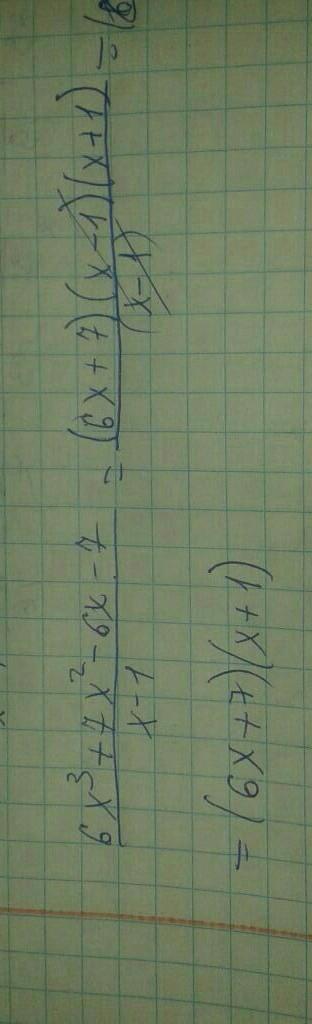 6x³ + 7x² - 6x - 7 / x - 1 = (6x + 7)(x - 1)(x + 1) / (x - 1) =
= (6x + 7)(x + 1)